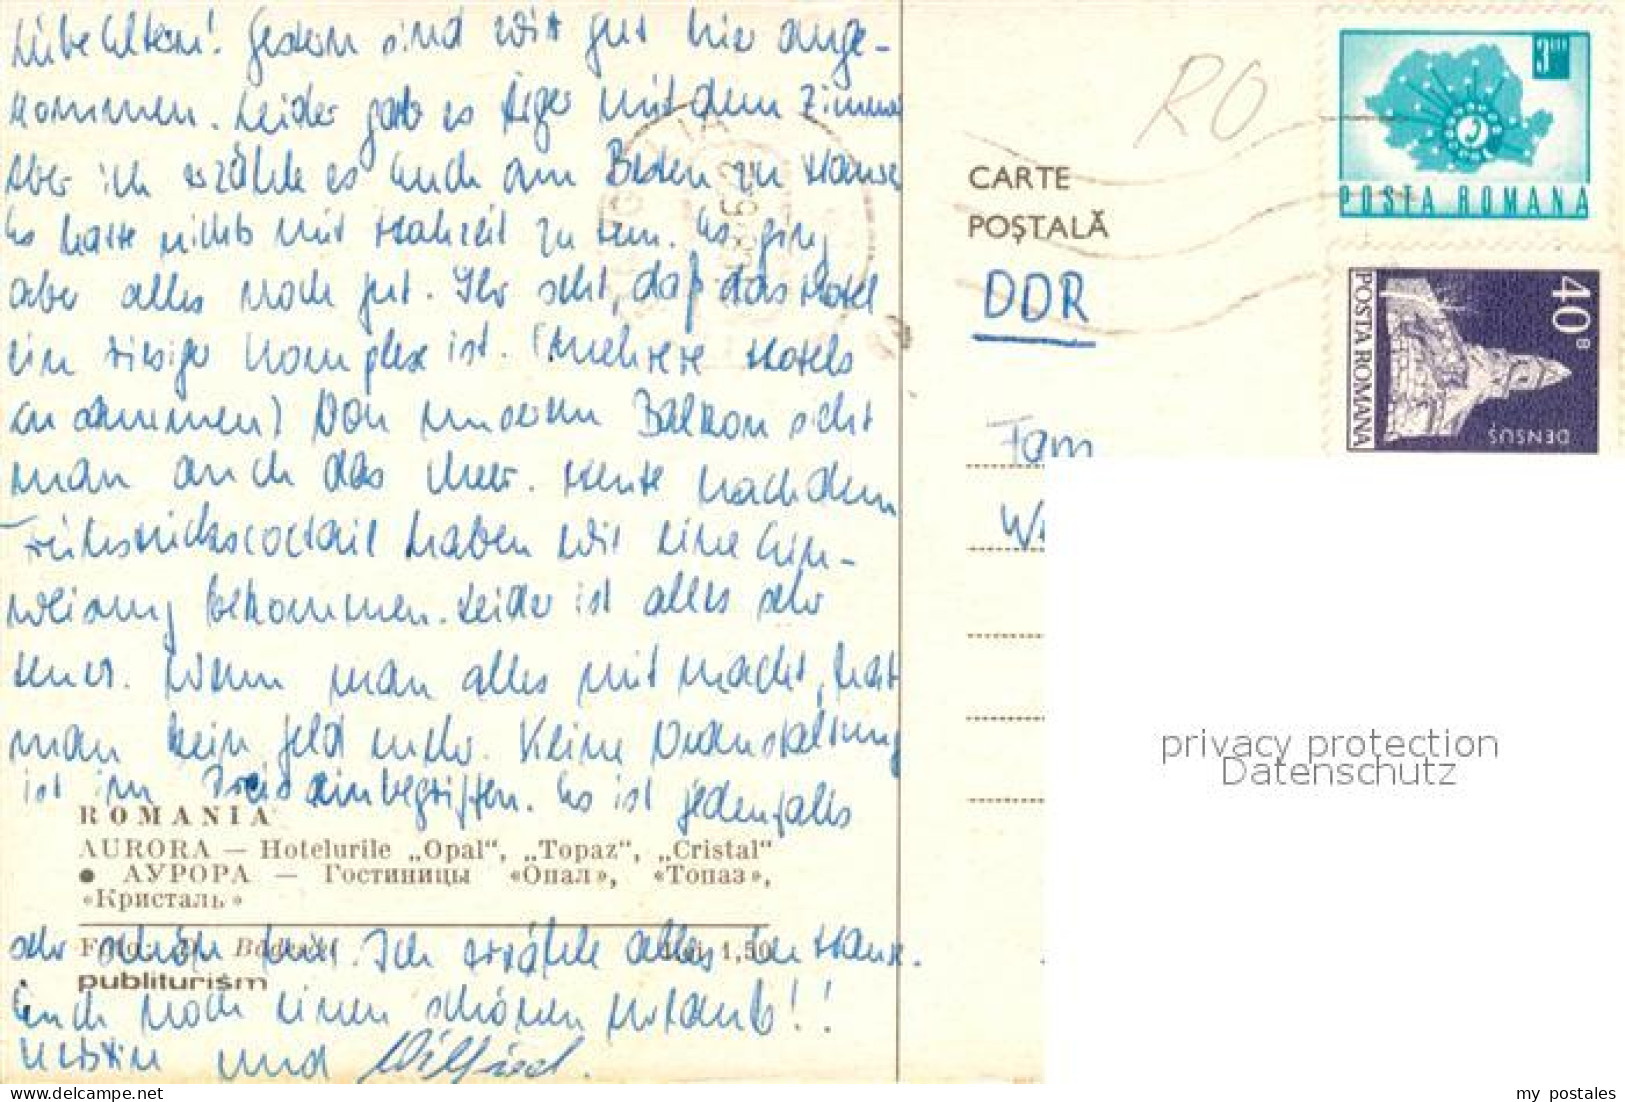 Liebe Eltern! Gestern sind wir gut hier ange-
kommen. Leider gab es Ärger mit dem Zimmer
Aber ich erzähle es Euch am Besten zu Hause
Es hatte nichts mit zu tun. Es ging
aber alles noch gut. Ihr seht, daß das Hotel
ein riesiger Komplex ist. (mehrere Hotels
zusammen) Von unserem Balkon sieht
man auch das Meer. Heute nach dem
Frühstückscocktail haben wir eine Ein-
weisung bekommen. Leider ist alles sehr
teuer. Wenn man alles mit macht, hat
man kein Geld mehr. Keine Veranstaltung
ist im Preis einbegriffen. Es ist jedenfalls
ROMANIA
AURORA — Hotelurile „Opal“, „Topaz“, „Cristal“
● АУРОРА — Гостиницы «Опал», «Топаз»,
«Кристаль»
sehr schön hier. Ich erzähle alles zu Hause.
Foto: D. Lei 1,50
publiturism
Euch noch einen schönen Urlaub!!
Kerstin und Wilfried.
RO
CARTE
POȘTALĂ
DDR
Fam
3 LEI
POSTA ROMANA
40 B
POSTA ROMANA
DENSUȘ
privacy protection
Datenschutz
my postales